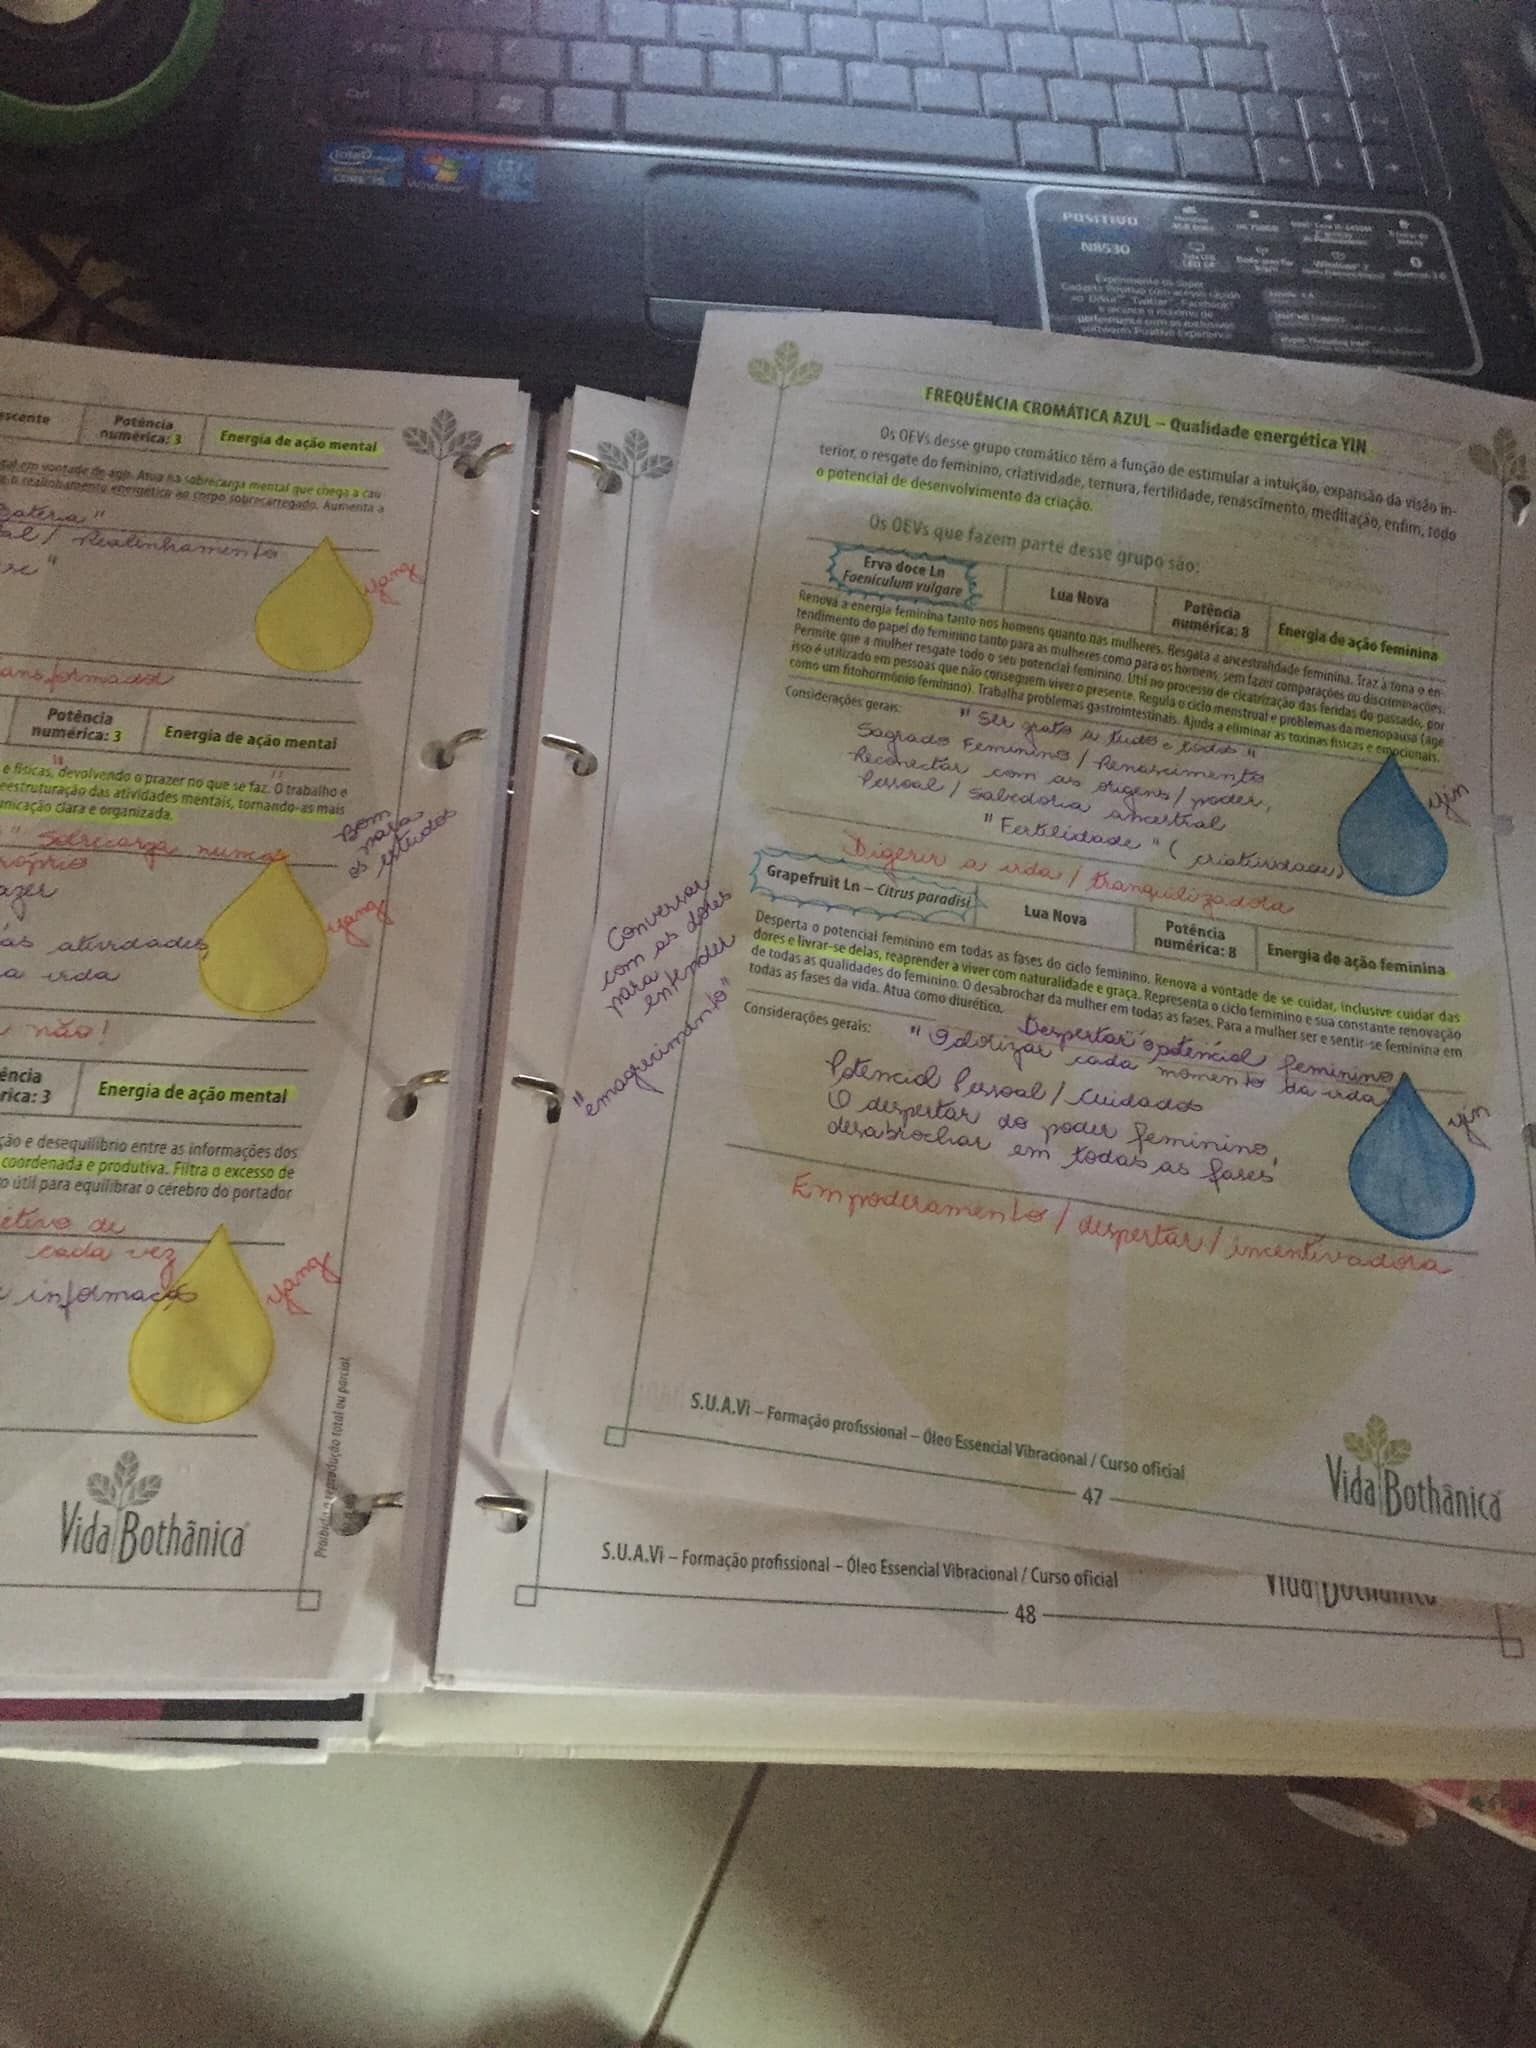 intel
CORE i5
Windows
POSITIVO
N8530
Experimente os super
escente
Potência
numérica: 3
Energia de ação mental
tal em vontade de agir. Atua na sobrecarga mental que chega a cau
e o realinhamento energético ao corpo sobrecarregado. Aumenta a
Realinhamento
yang
ansformador
Potência
numérica: 3
Energia de ação mental
e físicas, devolvendo o prazer no que se faz. O trabalho e
eestruturação das atividades mentais, tornando-as mais
unicação clara e organizada.
Bom
para
os estudos
" Sobrecarga nunca
róprio
azer
yang
ás atividades,
a vida
não!
ência
rica: 3
Energia de ação mental
ção e desequilíbrio entre as informações dos
coordenada e produtiva. Filtra o excesso de
o útil para equilibrar o cérebro do portador
etivo de
cada vez
yang
informação
Proibida a reprodução total ou parcial
Vida Bothânica
FREQUÊNCIA CROMÁTICA AZUL – Qualidade energética YIN
Os OEVs desse grupo cromático têm a função de estimular a intuição, expansão da visão in-
terior, o resgate do feminino, criatividade, ternura, fertilidade, renascimento, meditação, enfim, todo
o potencial de desenvolvimento da criação.
Os OEVs que fazem parte desse grupo são:
Erva doce Ln
Foeniculum vulgare
Lua Nova
Potência
numérica: 8
Energia de ação feminina
Renova a energia feminina tanto nos homens quanto nas mulheres. Resgata a ancestralidade feminina. Traz à tona o en-
tendimento do papel do feminino tanto para as mulheres como para os homens, sem fazer comparações ou discriminações.
Permite que a mulher resgate todo o seu potencial feminino. Útil no processo de cicatrização das feridas do passado, por
isso é utilizado em pessoas que não conseguem viver o presente. Regula o ciclo menstrual e problemas da menopausa (age
como um fitohormônio feminino). Trabalha problemas gastrointestinais. Ajuda a eliminar as toxinas físicas e emocionais.
Considerações gerais:
" Ser grato a tudo e todos "
Sagrado Feminino / Renascimento
Reconectar com as origens / poder,
Pessoal / Sabedoria ancestral
" Fertilidade " ( criatividade)
yin
Digerir a vida / tranquilizadora
Grapefruit Ln – Citrus paradisi
Lua Nova
Potência
numérica: 8
Energia de ação feminina
Desperta o potencial feminino em todas as fases do ciclo feminino. Renova a vontade de se cuidar, inclusive cuidar das
dores e livrar-se delas, reaprender a viver com naturalidade e graça. Representa o ciclo feminino e sua constante renovação
de todas as qualidades do feminino. O desabrochar da mulher em todas as fases. Para a mulher ser e sentir-se feminina em
todas as fases da vida. Atua como diurético.
Conversar
com as dores
para
entender
"emagrecimento"
Considerações gerais:
Despertar o potencial feminino
cada momento da vida
Potencial Pessoal / Cuidados
O despertar do poder feminino,
desabrochar em todas as fases
yin
Empoderamento / despertar / incentivadora
S.U.A.Vi – Formação profissional – Óleo Essencial Vibracional / Curso oficial
47
Vida Bothânica
S.U.A.Vi – Formação profissional – Óleo Essencial Vibracional / Curso oficial
48
Vida Bothânica